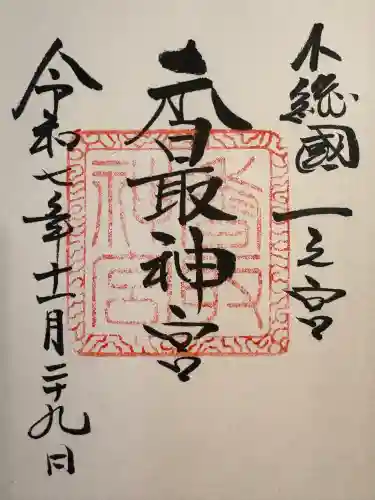 下総國 一之宮
香取神宮
令和七年十一月二十九日
香取
神宮